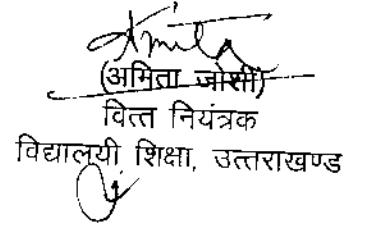 Amita
(अमिता जोशी)
वित्त नियंत्रक
विद्यालयी शिक्षा, उत्तराखण्ड